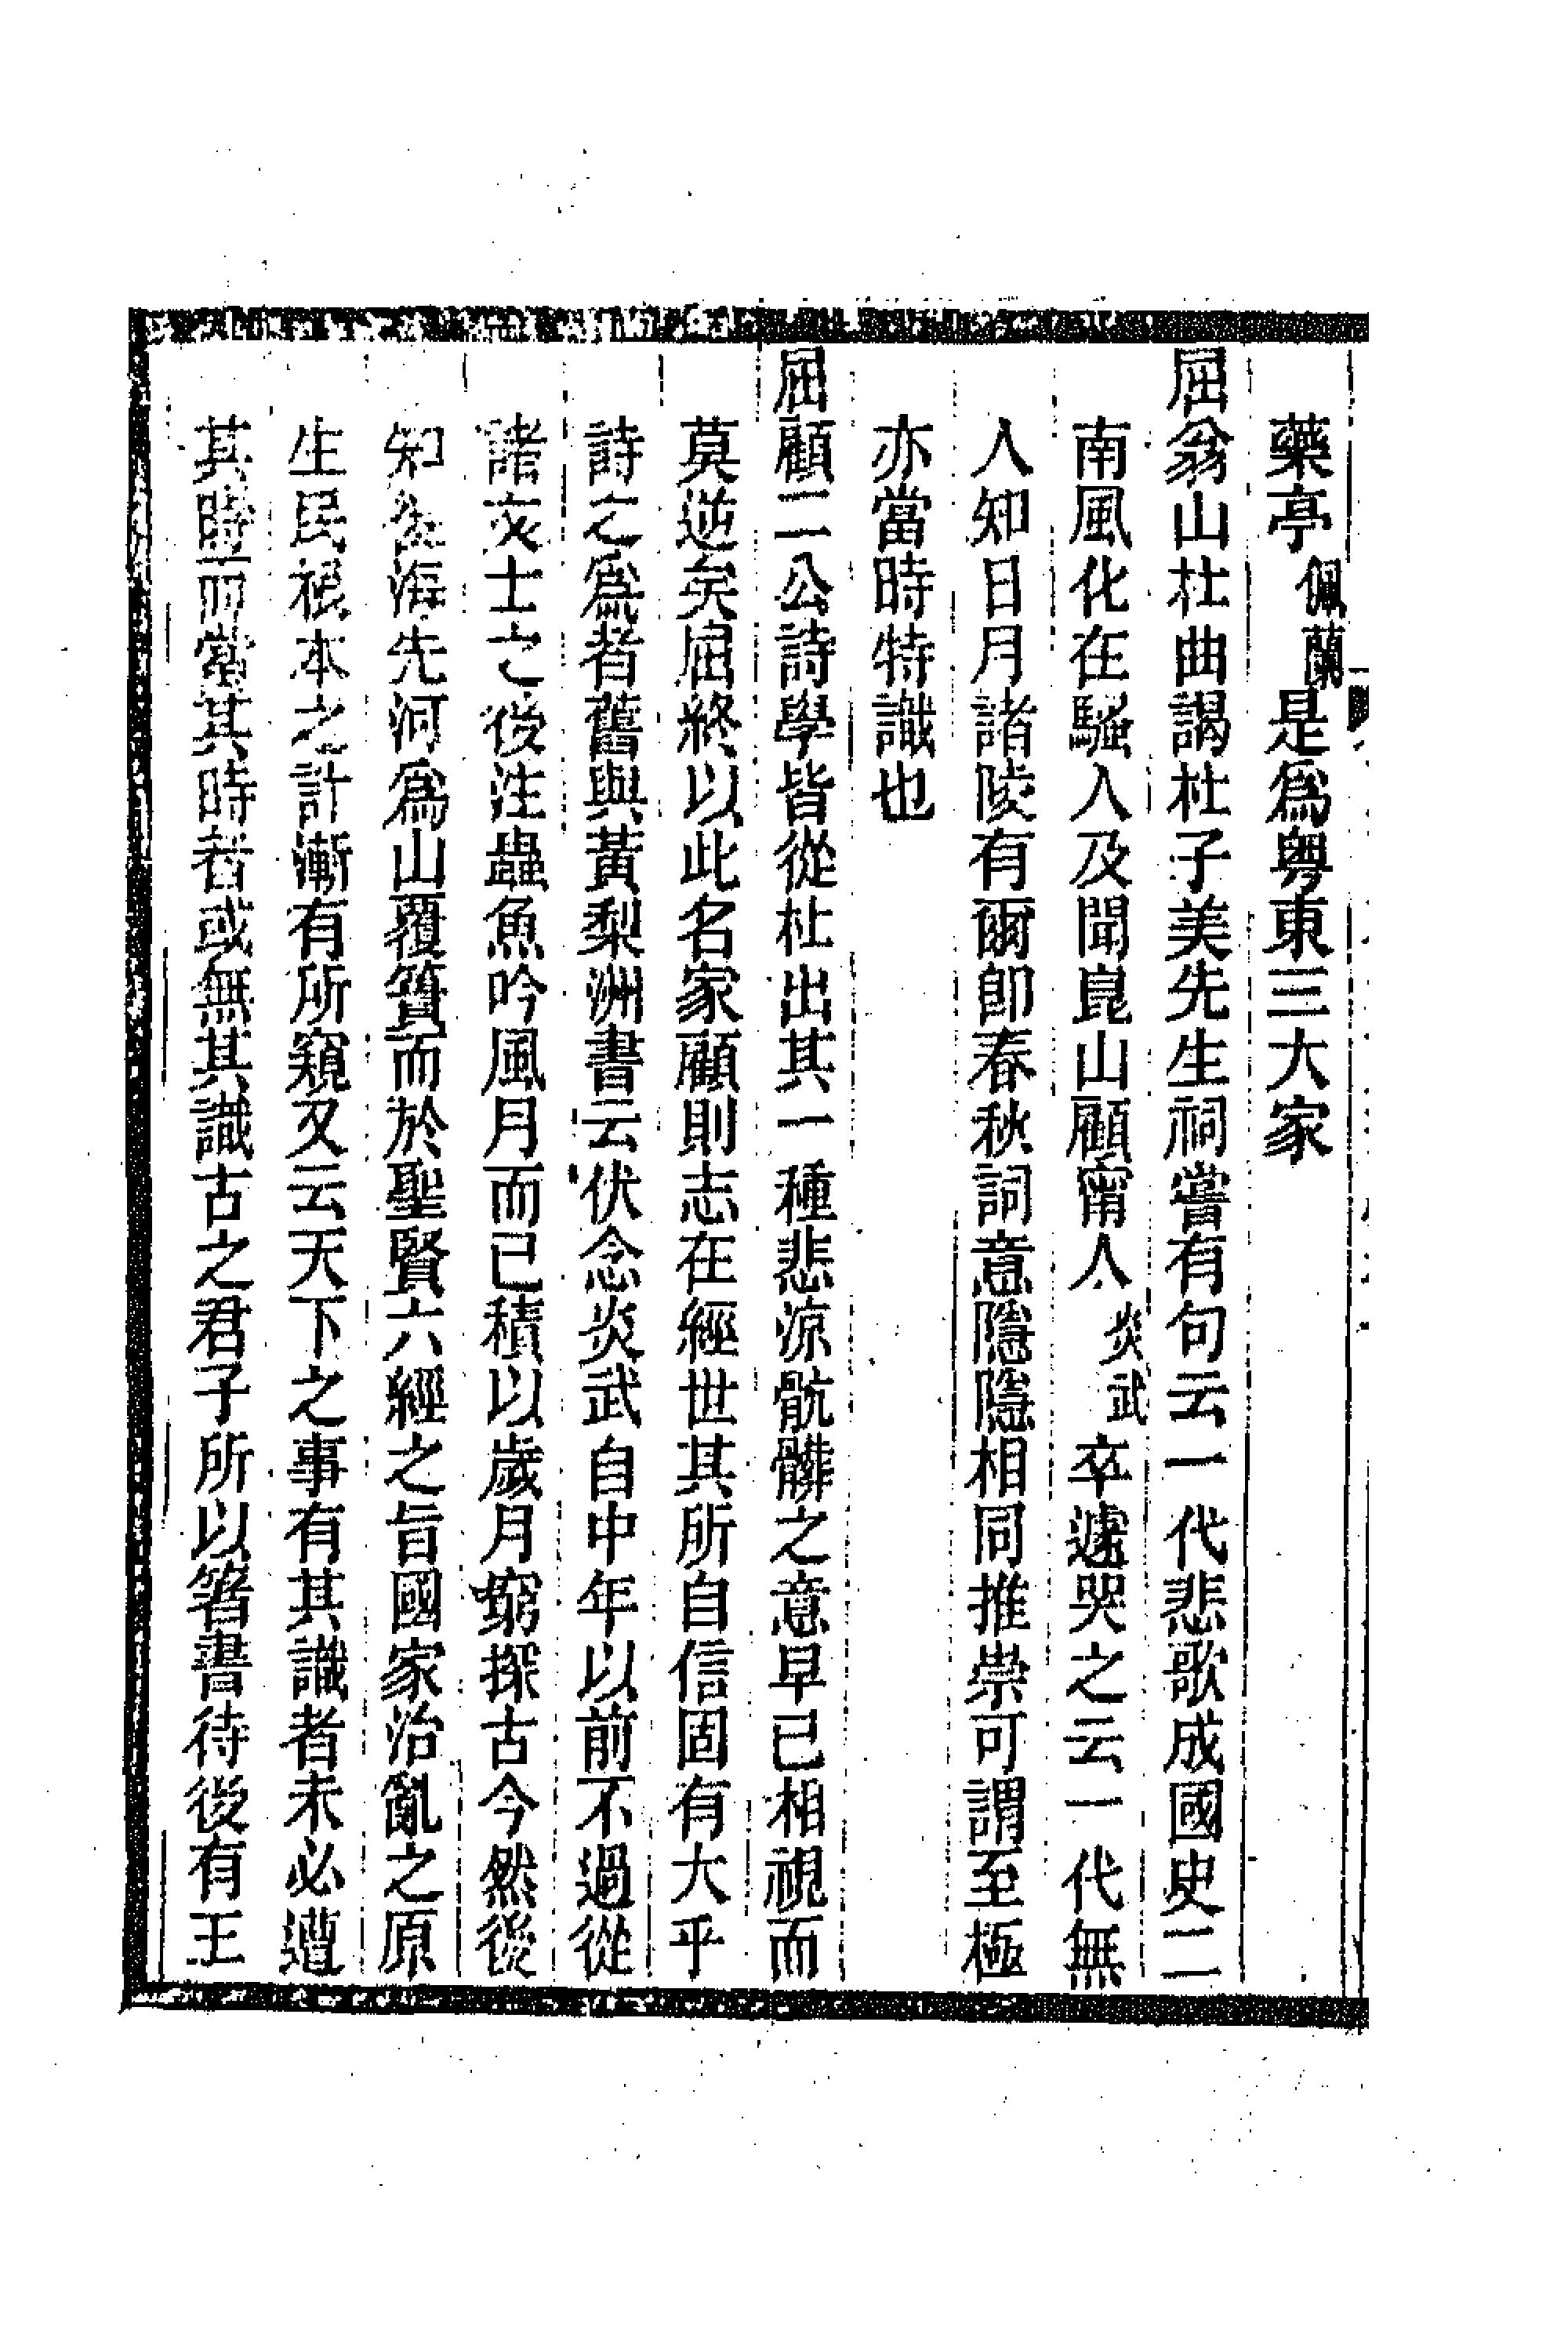 藥亭佩蘭是爲粤東三大家
屈翁山杜曲謁杜子美先生祠嘗有句云一代悲歌成國史二
南風化在騷人及聞崑山顧甯人炎武卒遽哭之云一代無
人知日月諸陵有爾卽春秋詞意隱隱相同推崇可謂至極
亦當時特識也
屈顧二公詩學皆從杜出其一種悲涼骯髒之意早已相視而
莫逆矣屈終以此名家顧則志在經世其所自信固有大乎
詩之爲者舊與黃梨洲書云伏念炎武自中年以前不過從
諸文士之後注蟲魚吟風月而已積以歲月窮探古今然後
知後海先河爲山覆簣而於聖賢六經之旨國家治亂之原
生民根本之計漸有所窺又云天下之事有其識者未必遭
其時而當其時者或無其識古之君子所以箸書待後有王